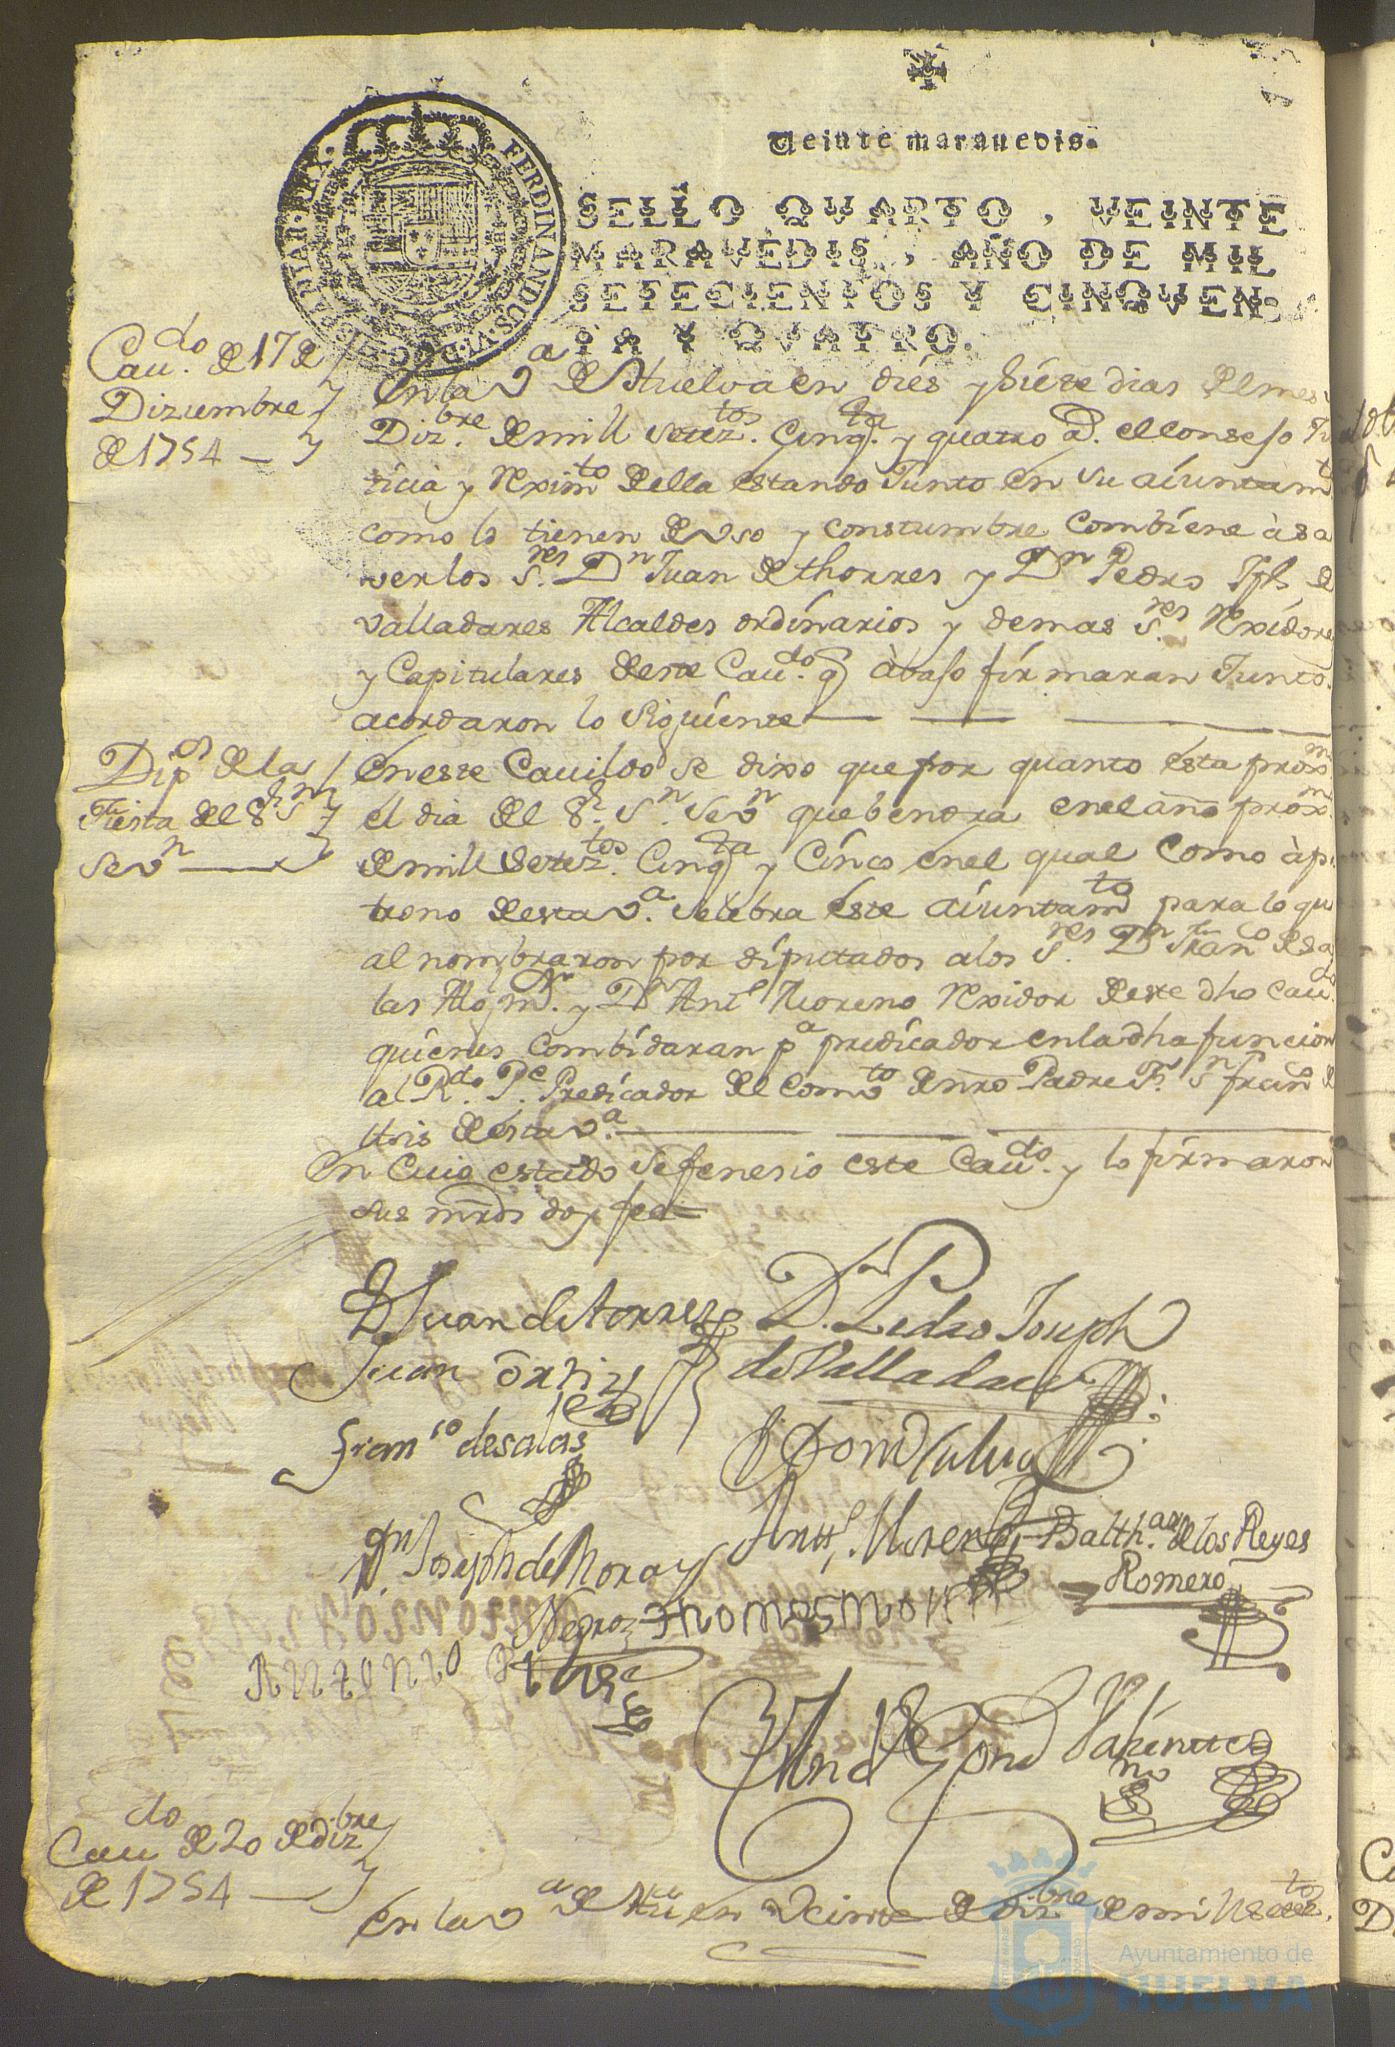 Veinte maravedis.
FERDINANDUS·VI·D·G·HISPANIAR·REX·
SELLO QVARTO, VEINTE
MARAVEDIS, AÑO DE MIL
SETECIENTOS Y CINQVEN-
TA Y QVATRO.
Cau.do de 17 de
Diziembre
de 1754
En la V.a de Huelva en diés y siete dias del mes
Diz.bre de mill setez.tos Cinq.ta y quatro a.s el Consejo Jus
ticia y Rexim.to della estando Junto en su aiuntam.to
como lo tienen de uso y constumbre combiene à sa
ver los S.res D.n Juan de thorres y D.n Pedro Jph de
valladares Alcaldes ordinarios y demas S.res Rexidores
y Capitulares deste Cau.do q abajo firmaran Junto
acordaron lo siguiente
Dip.on de la
Fiesta del S.r S.n
Seb.n
En este Cauildo se dixo que por quanto esta prox.m
el dia del S.r S.n Seb.n que bendra en el año prox.mo
de mill setez.tos Cinq.ta y Cinco en el qual Como à pa
trono desta V.a selebra este aiuntam.to para lo qu
al nombraron por diputados a los S.res D.n Fran.co de Sa
las Alg.m.r y D.n Ant.o Moreno Rexidor deste dho Cau.do
quienes combidaran p.a predicador en la dha funcion
al R.do P.e Predicador del Comb.to de nro Padre S.r S.n Fran.co
desta V.a
En Cuio estado se fenesio este Cau.do y lo firmaron
sus mrds doy fee
D Juan de torres
D.n Pedro Joseph
de Valladares
Juan Ortiz
Fran.co de salas
D.n Joseph de Mora y
Negro
Antt.o Moreno
Balth.ar de los Reyes
Romero
THOMAS MORA
ANTONIO
Valiente
Cau.do de 20 de diz.bre
de 1754
En la V.a de Hu.a en Veinte de Diz.bre de mill setez.tos
Ayuntamiento de
HUELVA